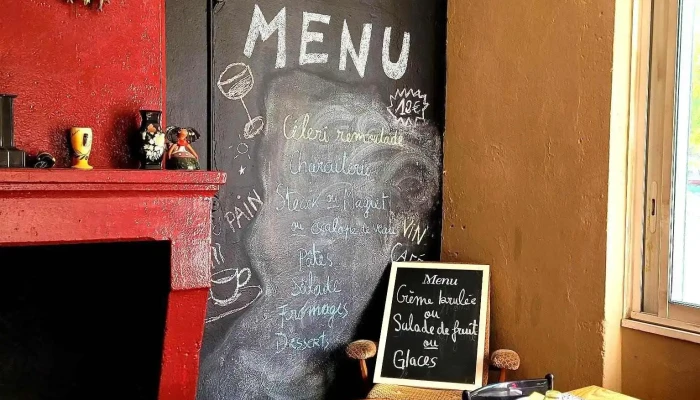 MENU
12€
Céleri remoulade
Charcuterie
Steack ou Magret
ou escalope de veau
Pâtes
Salade
Fromages
Desserts
PAIN
VIN
CAFÉ
Menu
Crème brulée
ou
Salade de fruit
ou
Glaces